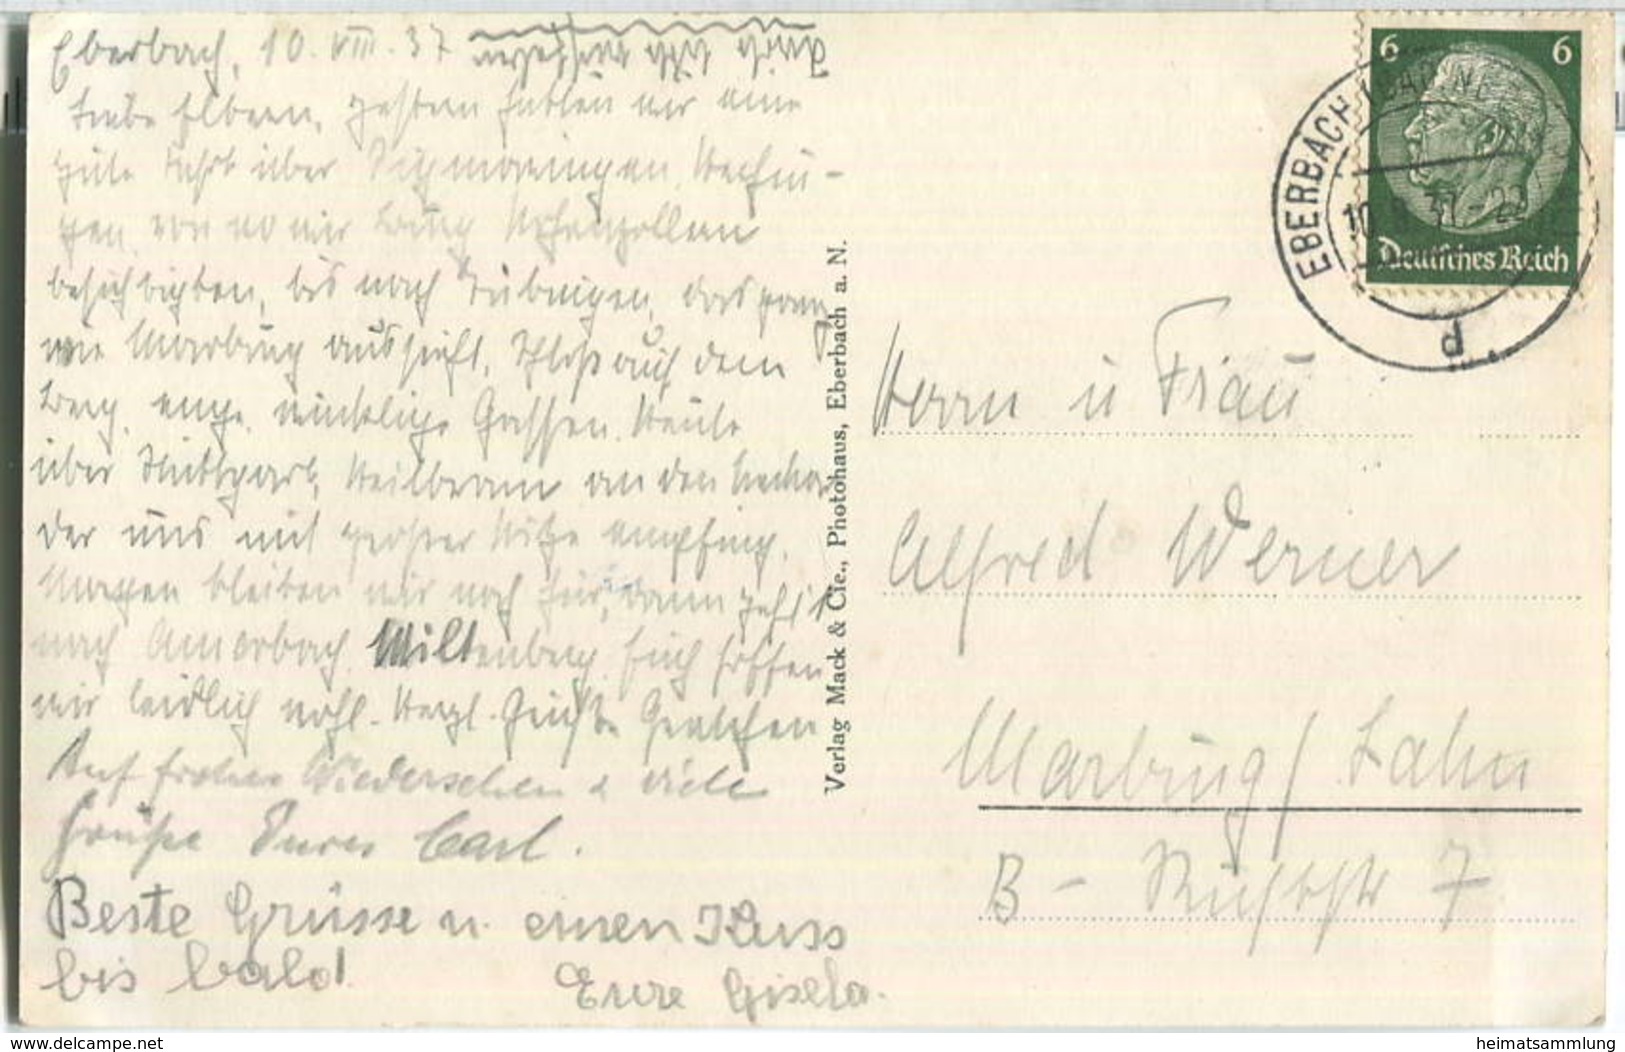 Eberbach, 10. VIII. 37
Liebe Eltern, gestern hatten wir eine
gute Fahrt über Sigmaringen, Hechin-
gen, von wo wir Burg Hohenzollern
besichtigten, bis nach Tübingen, das ganz
wie Marburg aussieht, Schloß auf dem
Berg, enge, winklige Gassen. Heute
über Stuttgart, Heilbronn an den Neckar
der uns mit großer Hitze empfing.
Morgen bleiben wir noch hier, dann geht's
nach Amorbach, Miltenberg. Euch hoffen
wir leidlich wohl. Herzl. Grüße Gretchen
Auf frohes Wiedersehen u viele
Grüße Eures Carl.
Beste Grüsse u. einen Kuss
bis bald
Eure Gisela.
Verlag Mack & Cie., Photohaus, Eberbach a. N.
6 6
Deutsches Reich
EBERBACH (BADEN)
10.8.37.-22
d
Herrn u Frau
Alfred Werner
Marburg / Lahn
B-
7
www.delcampe.net
heimatsammlung